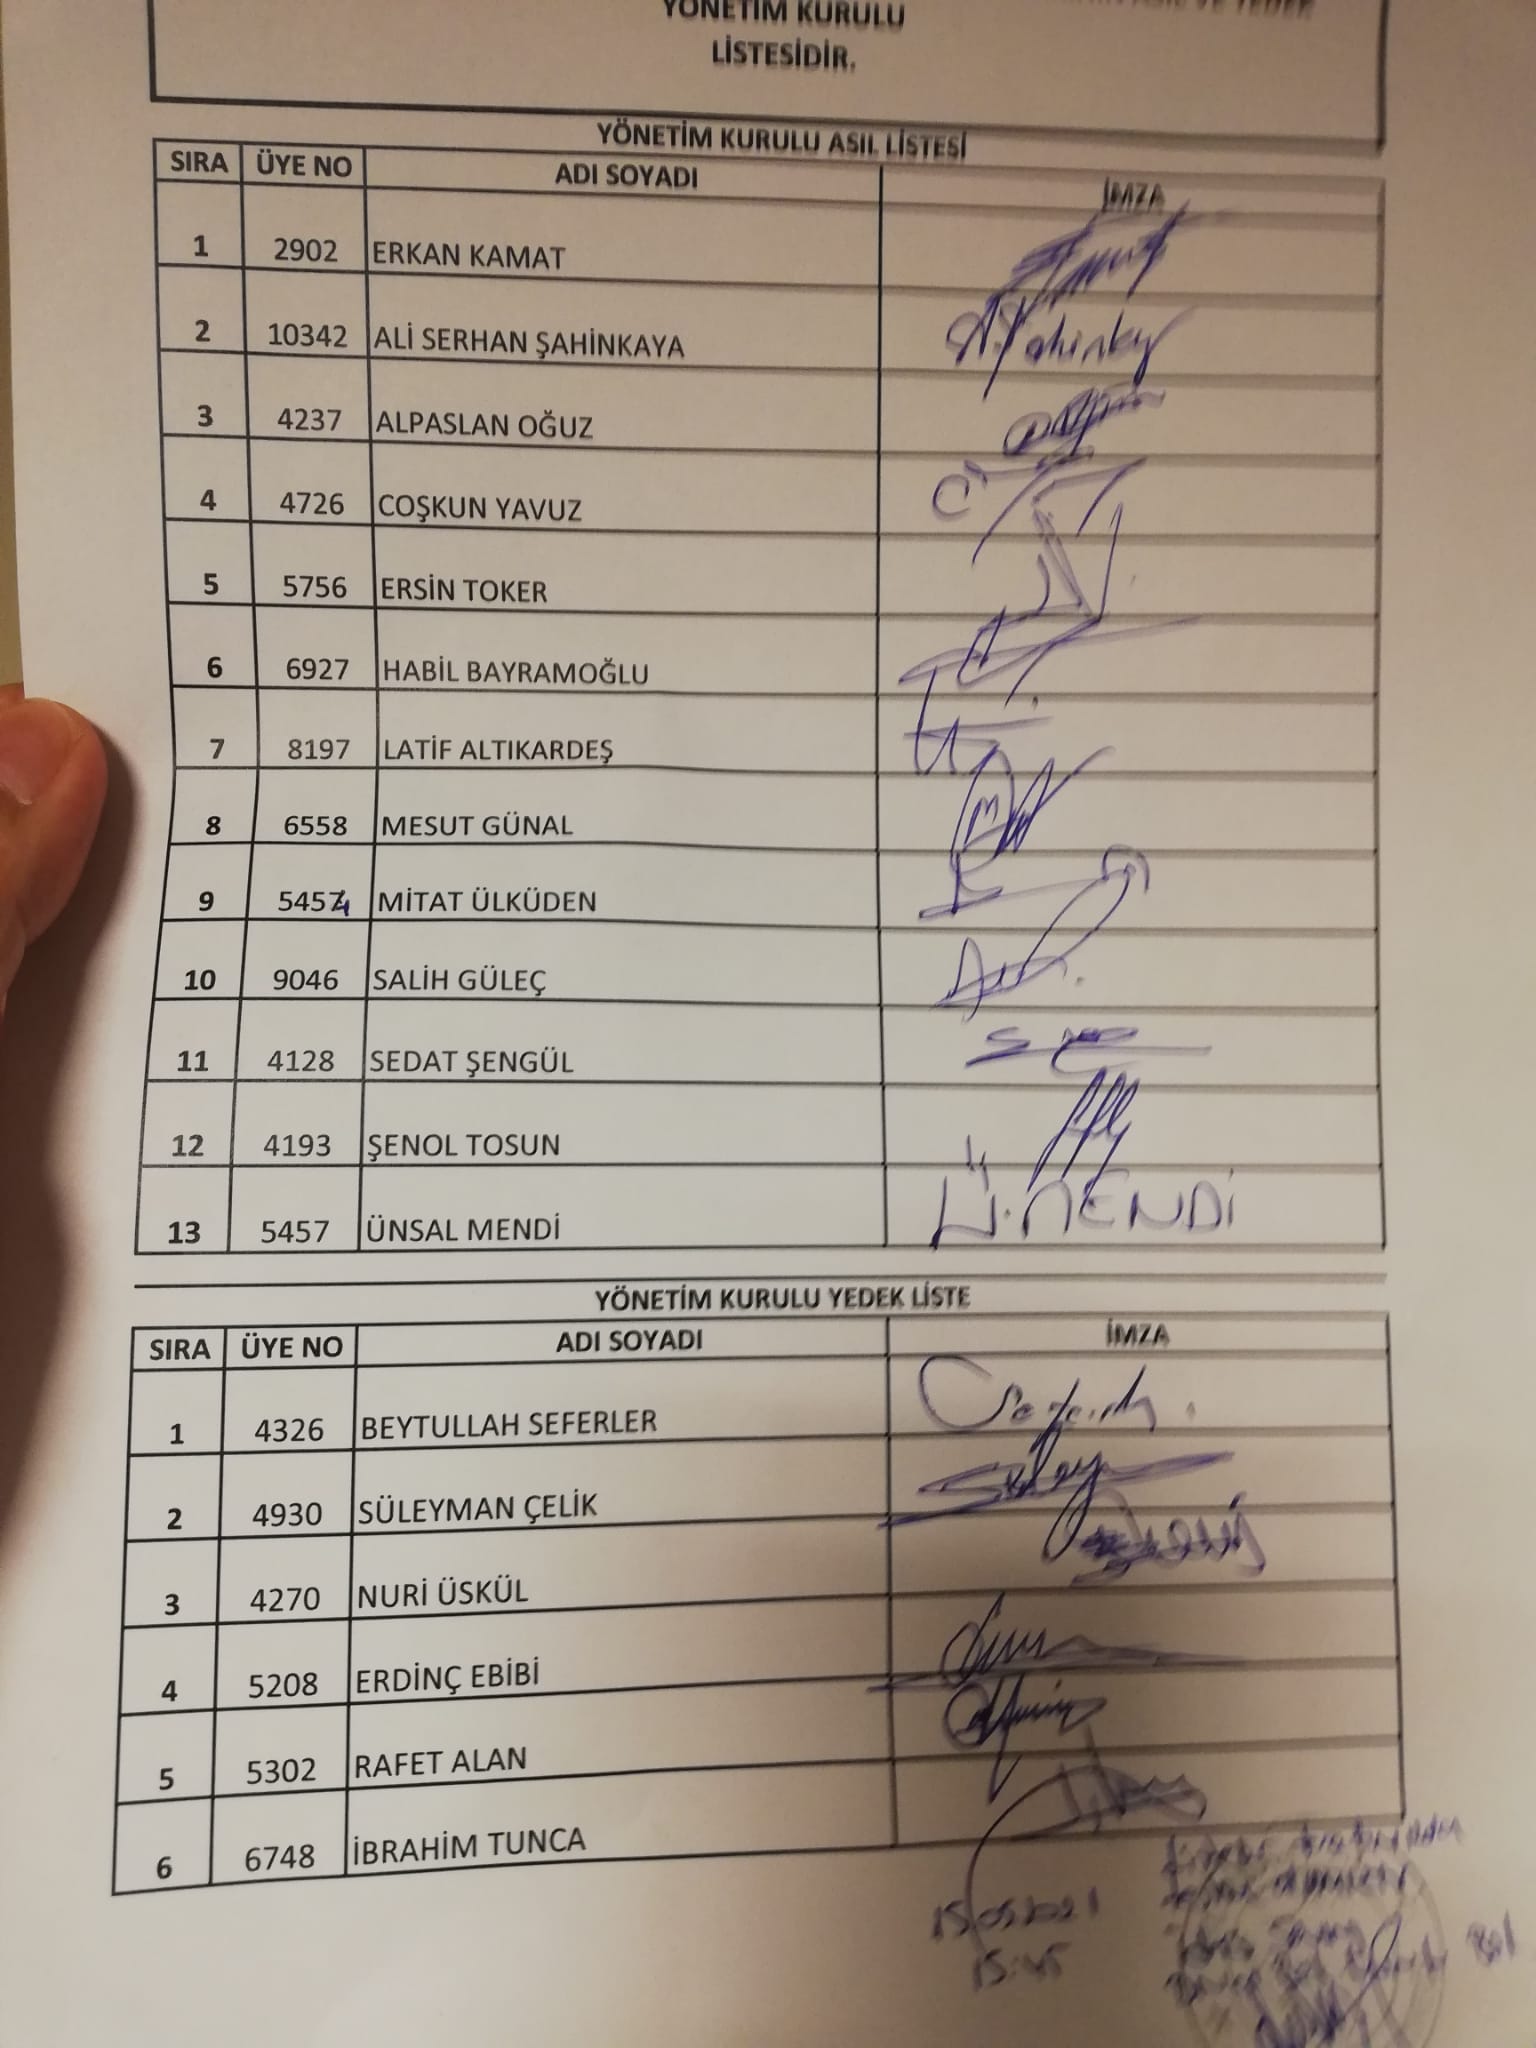 VE YEDEK
YÖNETİM KURULU
LİSTESİDİR.
YÖNETİM KURULU ASIL LİSTESİ
SIRA ÜYE NO ADI SOYADI İMZA
1 2902 ERKAN KAMAT
2 10342 ALİ SERHAN ŞAHİNKAYA
3 4237 ALPASLAN OĞUZ
4 4726 COŞKUN YAVUZ
5 5756 ERSİN TOKER
6 6927 HABİL BAYRAMOĞLU
7 8197 LATİF ALTIKARDEŞ
8 6558 MESUT GÜNAL
9 5454 MİTAT ÜLKÜDEN
10 9046 SALİH GÜLEÇ
11 4128 SEDAT ŞENGÜL
12 4193 ŞENOL TOSUN
13 5457 ÜNSAL MENDİ Ü.MENDİ
YÖNETİM KURULU YEDEK LİSTE
SIRA ÜYE NO ADI SOYADI İMZA
1 4326 BEYTULLAH SEFERLER
2 4930 SÜLEYMAN ÇELİK
3 4270 NURİ ÜSKÜL
4 5208 ERDİNÇ EBİBİ
5 5302 RAFET ALAN
6 6748 İBRAHİM TUNCA
15.05.2021
15:45